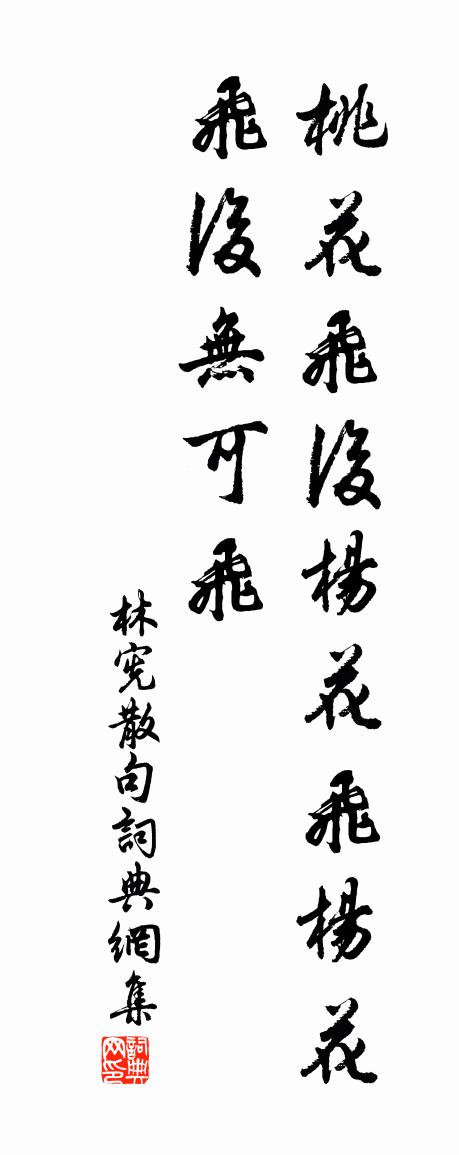 桃花飛後楊花飛楊花
飛後無可飛
林憲散句詞典網集
詞典网印